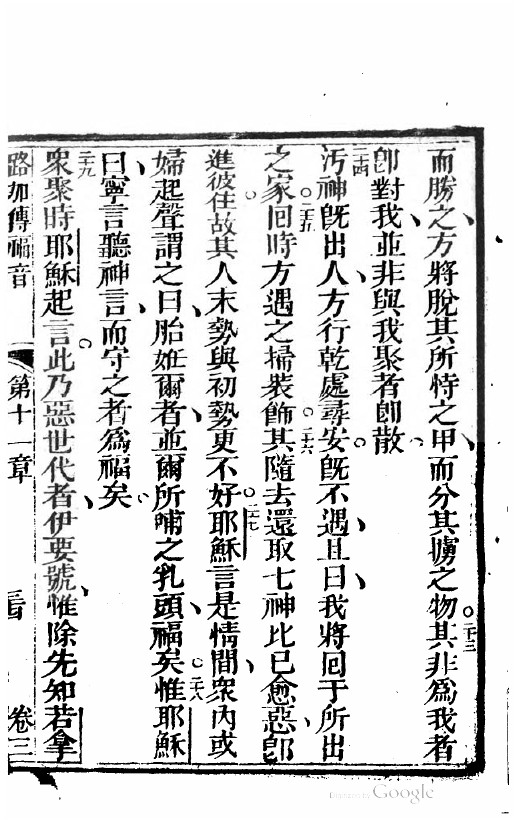 而勝之方將脫其所恃之甲而分其擄之物二十三其非為我者
卽對我並非與我聚者卽散
二十四汚神旣出人方行乾處尋安旣不遇且曰我將囘于所出
之家二十五囘時方遇之掃裝飾二十六其隨去還取七神比已愈惡卽
進彼住故其人末勢與初勢更不好二十七耶穌言是情間衆內或
婦起聲謂之曰胎妊爾者並爾所哺之乳頭福矣二十八惟耶穌
曰寧言聽神言而守之者為福矣
二十九衆聚時耶穌起言此乃惡世代者伊要號惟除先知若拿
路加傳福音 第十一章 卷三
Google